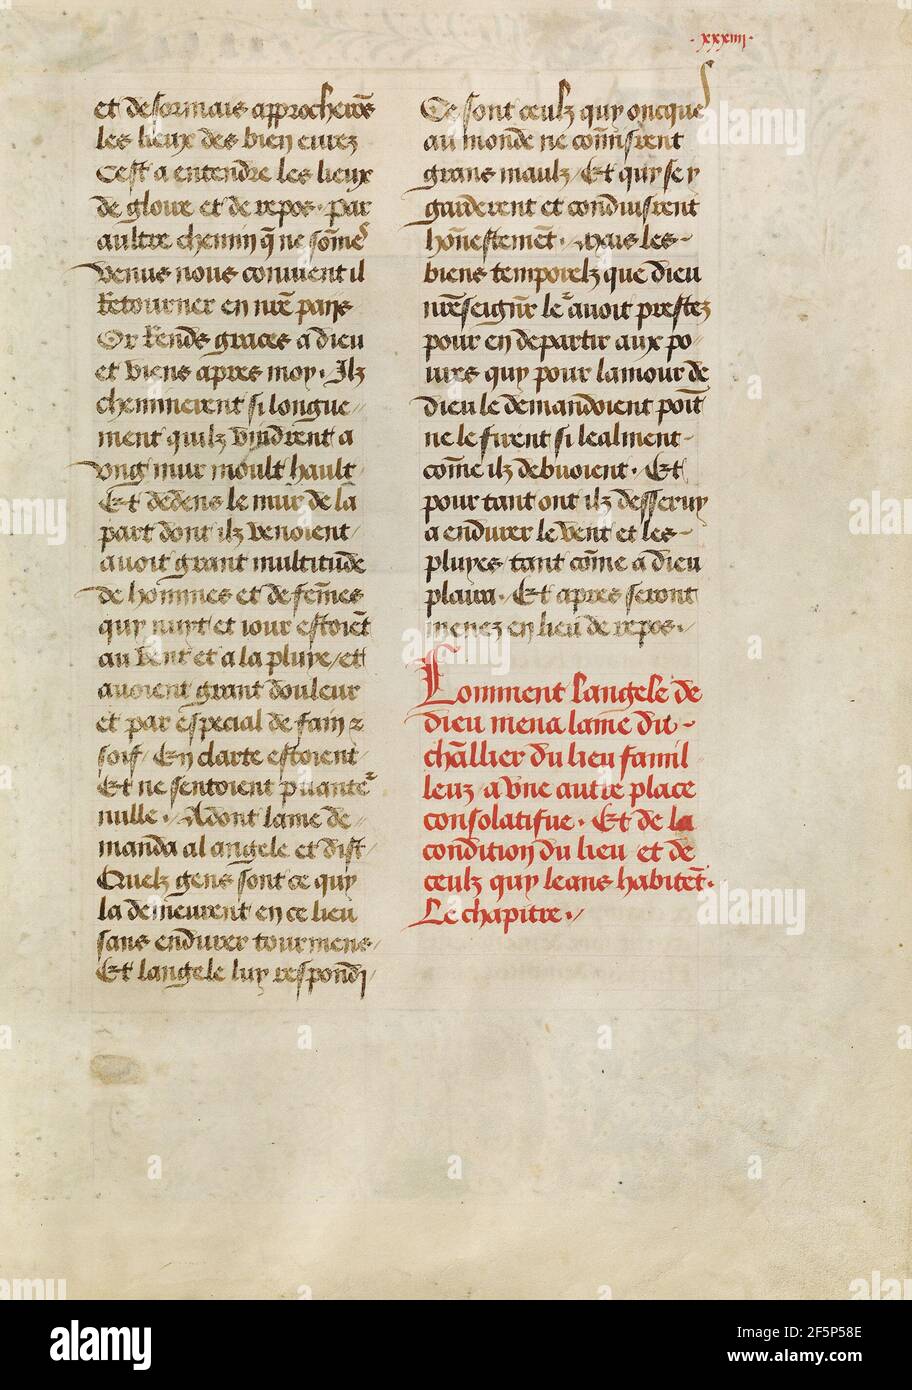 ·xxxiiii·
et desormais approcherõs
les lieux des bien eurez
Cest a entendre les lieux
de gloire et de repos· par
aultre chemin q̃ ne sõmes
venus nous conuient il
Retourner en nr̃e pays
Or Rends graces a dieu
et viens apres moy· Ilz
cheminerent si longue//
ment quilz vindrent a
vng mur moult hault
Et dedens le mur de la
part dont ilz venoient
auoit grant multitude
de hommes et de fem̃es
quy nuyt et iour estoiẽt
au vent et a la pluye/ et
auoient grant douleur
et par especial de fain &
soif/ En clarte estoient
Et ne sentoient puante^r
nulle· Adont lame de/
manda al angele et dist/
Quelz gens sont ce quy
la demeurent en ce lieu
sans endurer tourmens/
Et langele luy respondi/
Ce sont ceulz quy oncques
au monde ne com̃isrent
grans maulz/ Et quy se y
garderent et conduisrent
hon̄estemẽt· Mais les-
biens temporelz que dieu
nr̃e seignr̃ le^r auoit prestez
pour en departir aux po-
ures quy pour lamour de
dieu le demandoient poĩt
ne le firent si lealment-
com̃e ilz debuoient· Et
pour tant ont ilz desseruy
a endurer le vent et les-
pluyes tant com̃e a dieu
plaira· Et apres seront
menez en lieu de repos·
Comment langele de
dieu mena lame du-
chãllier du lieu famil
leuz a vne autre place
consolatifue· Et de la
condition du lieu et de
ceulz quy leans habitẽt·
Le chapitre·
alamy
Image ID: 2F5P58E
www.alamy.com